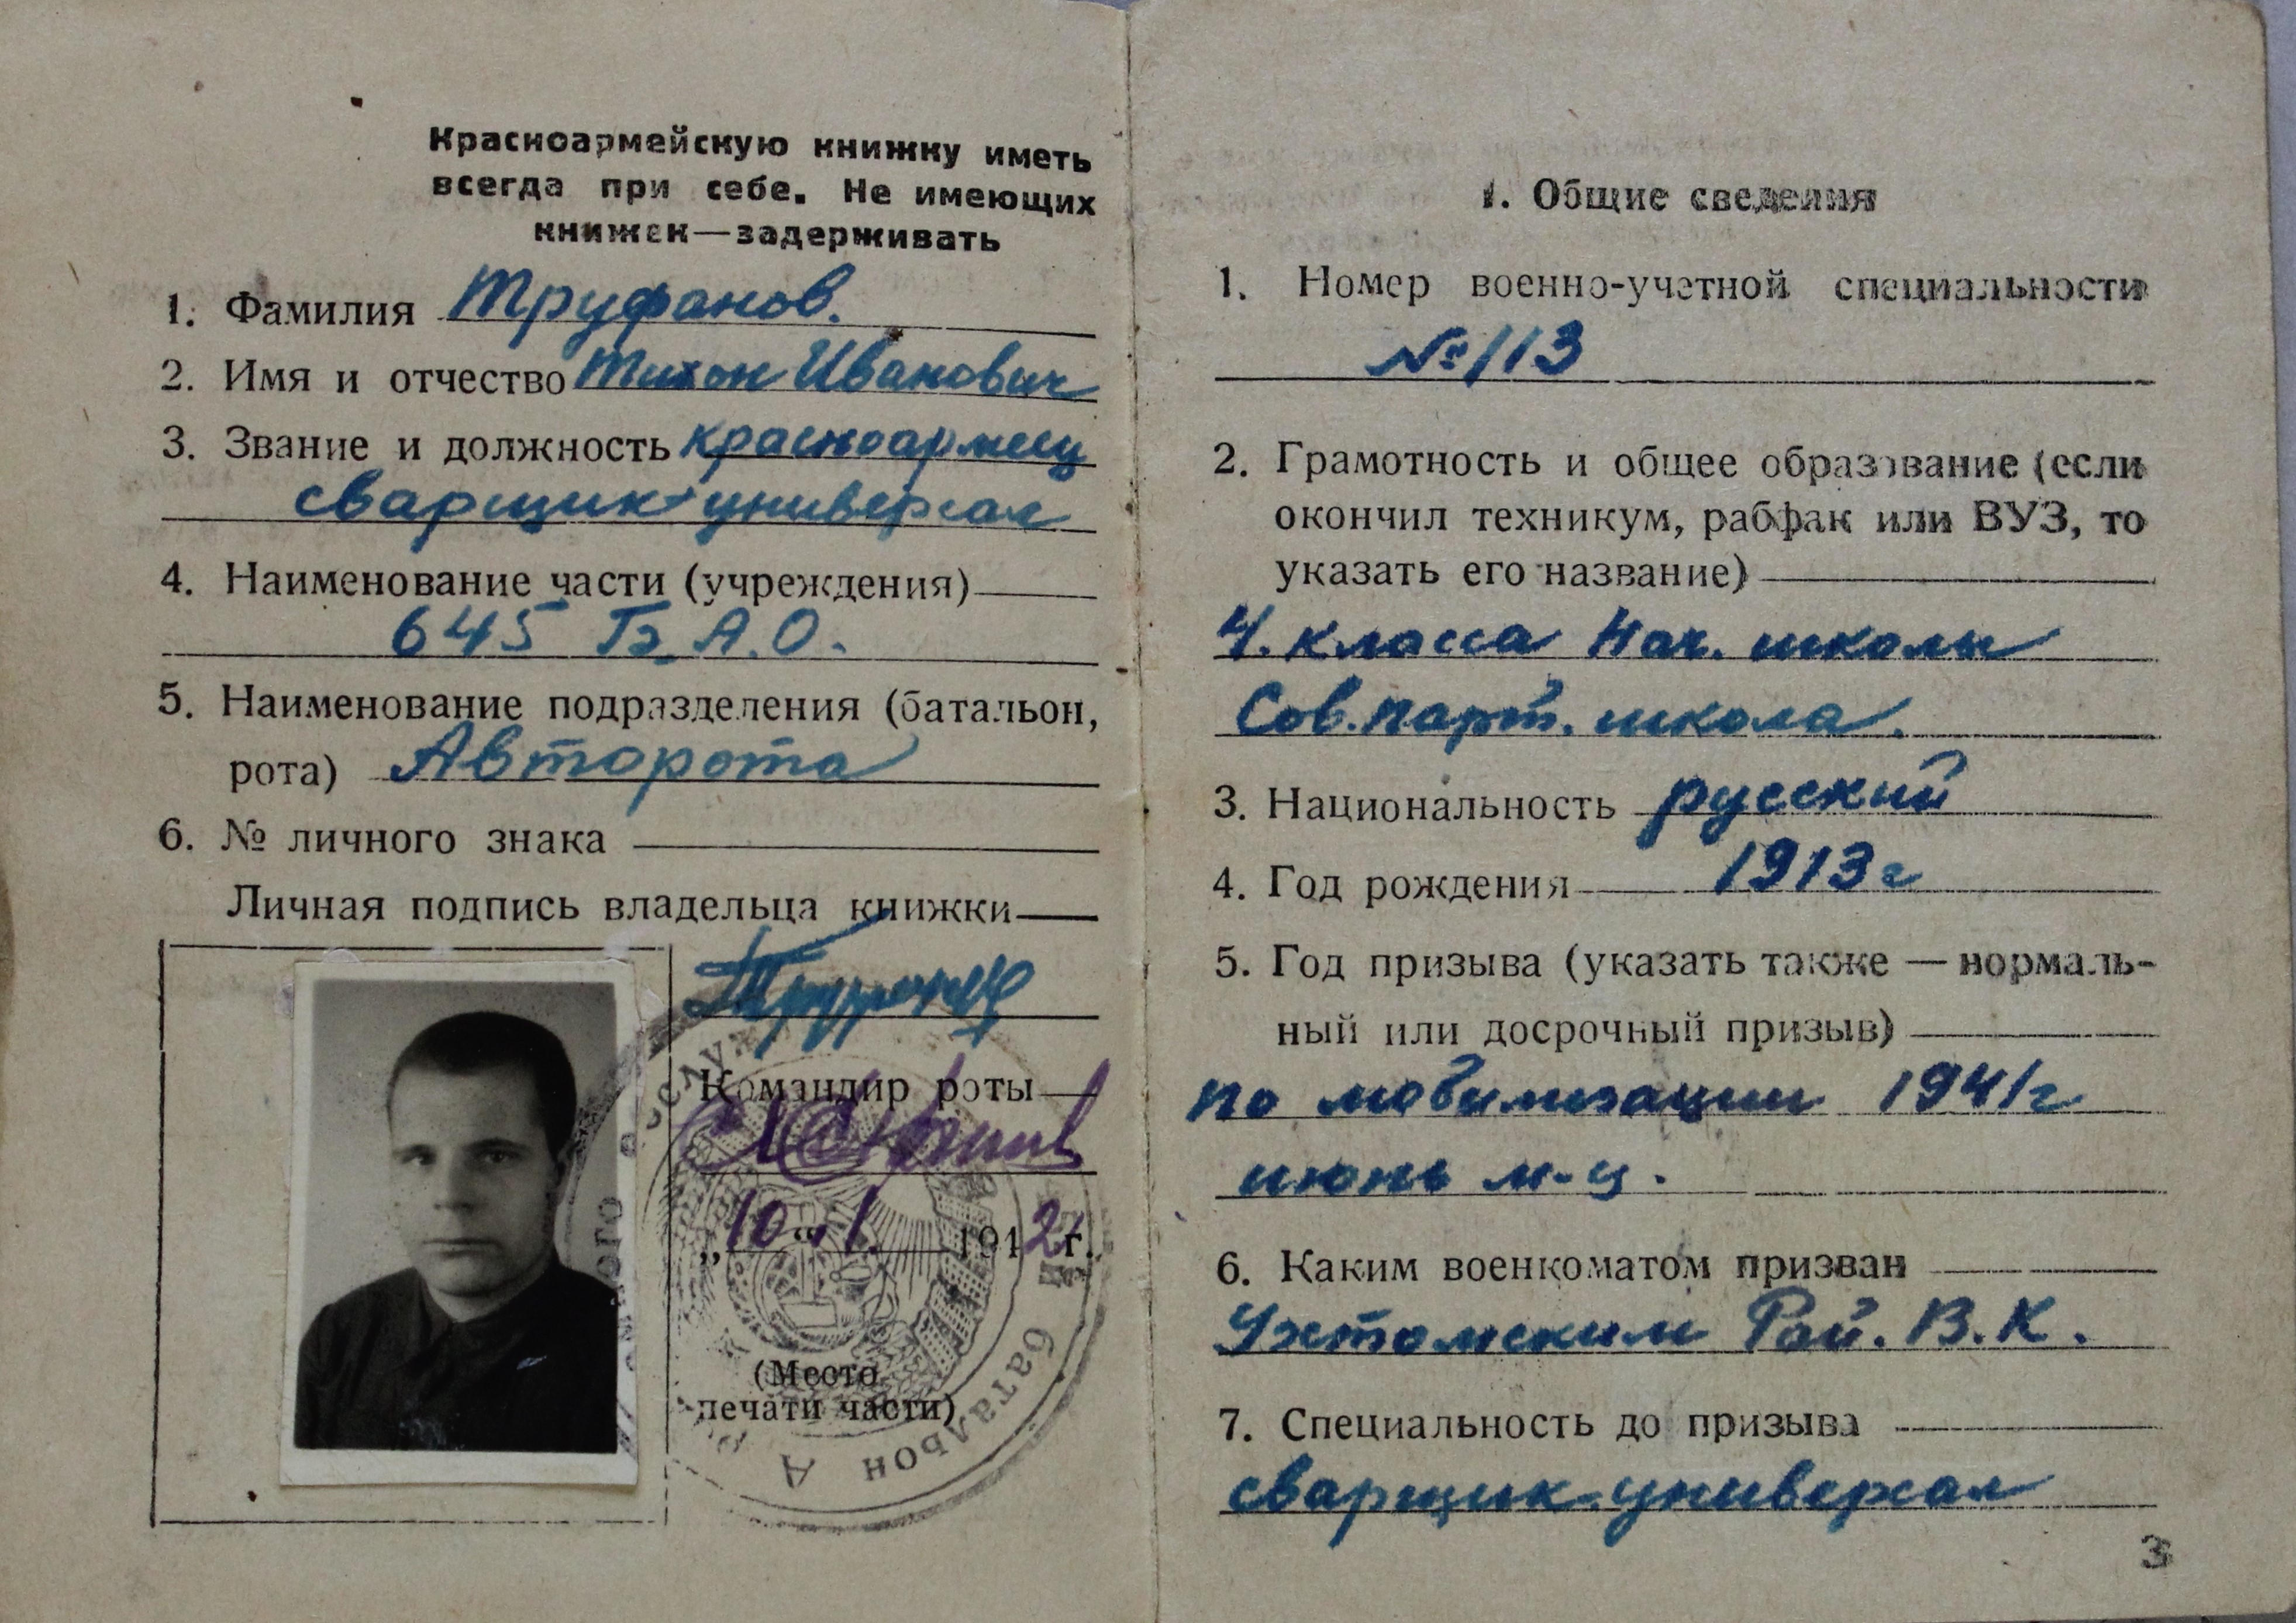 Красноармейскую книжку иметь
всегда при себе. Не имеющих
книжек—задерживать
1. Фамилия Труфанов.
2. Имя и отчество Тихон Иванович
3. Звание и должность красноармеец
сварщик-универсал
4. Наименование части (учреждения)
645 Б. А. О.
5. Наименование подразделения (батальон,
рота) Авторота
6. № личного знака
Личная подпись владельца книжки
Командир роты
„10“ 1 1942 г.
(Место
печати части)
батальон А
1. Общие сведения
1. Номер военно-учетной специальности
№ 113
2. Грамотность и общее образование (если
окончил техникум, рабфак или ВУЗ, то
указать его название)
4. класса Нач. школы
Сов. парт. школа.
3. Национальность русский
4. Год рождения 1913 г
5. Год призыва (указать также — нормаль-
ный или досрочный призыв)
по мобилизации 1941 г
июнь м-ц.
6. Каким военкоматом призван
Ухтомским Рай. В. К.
7. Специальность до призыва
сварщик-универсал
3